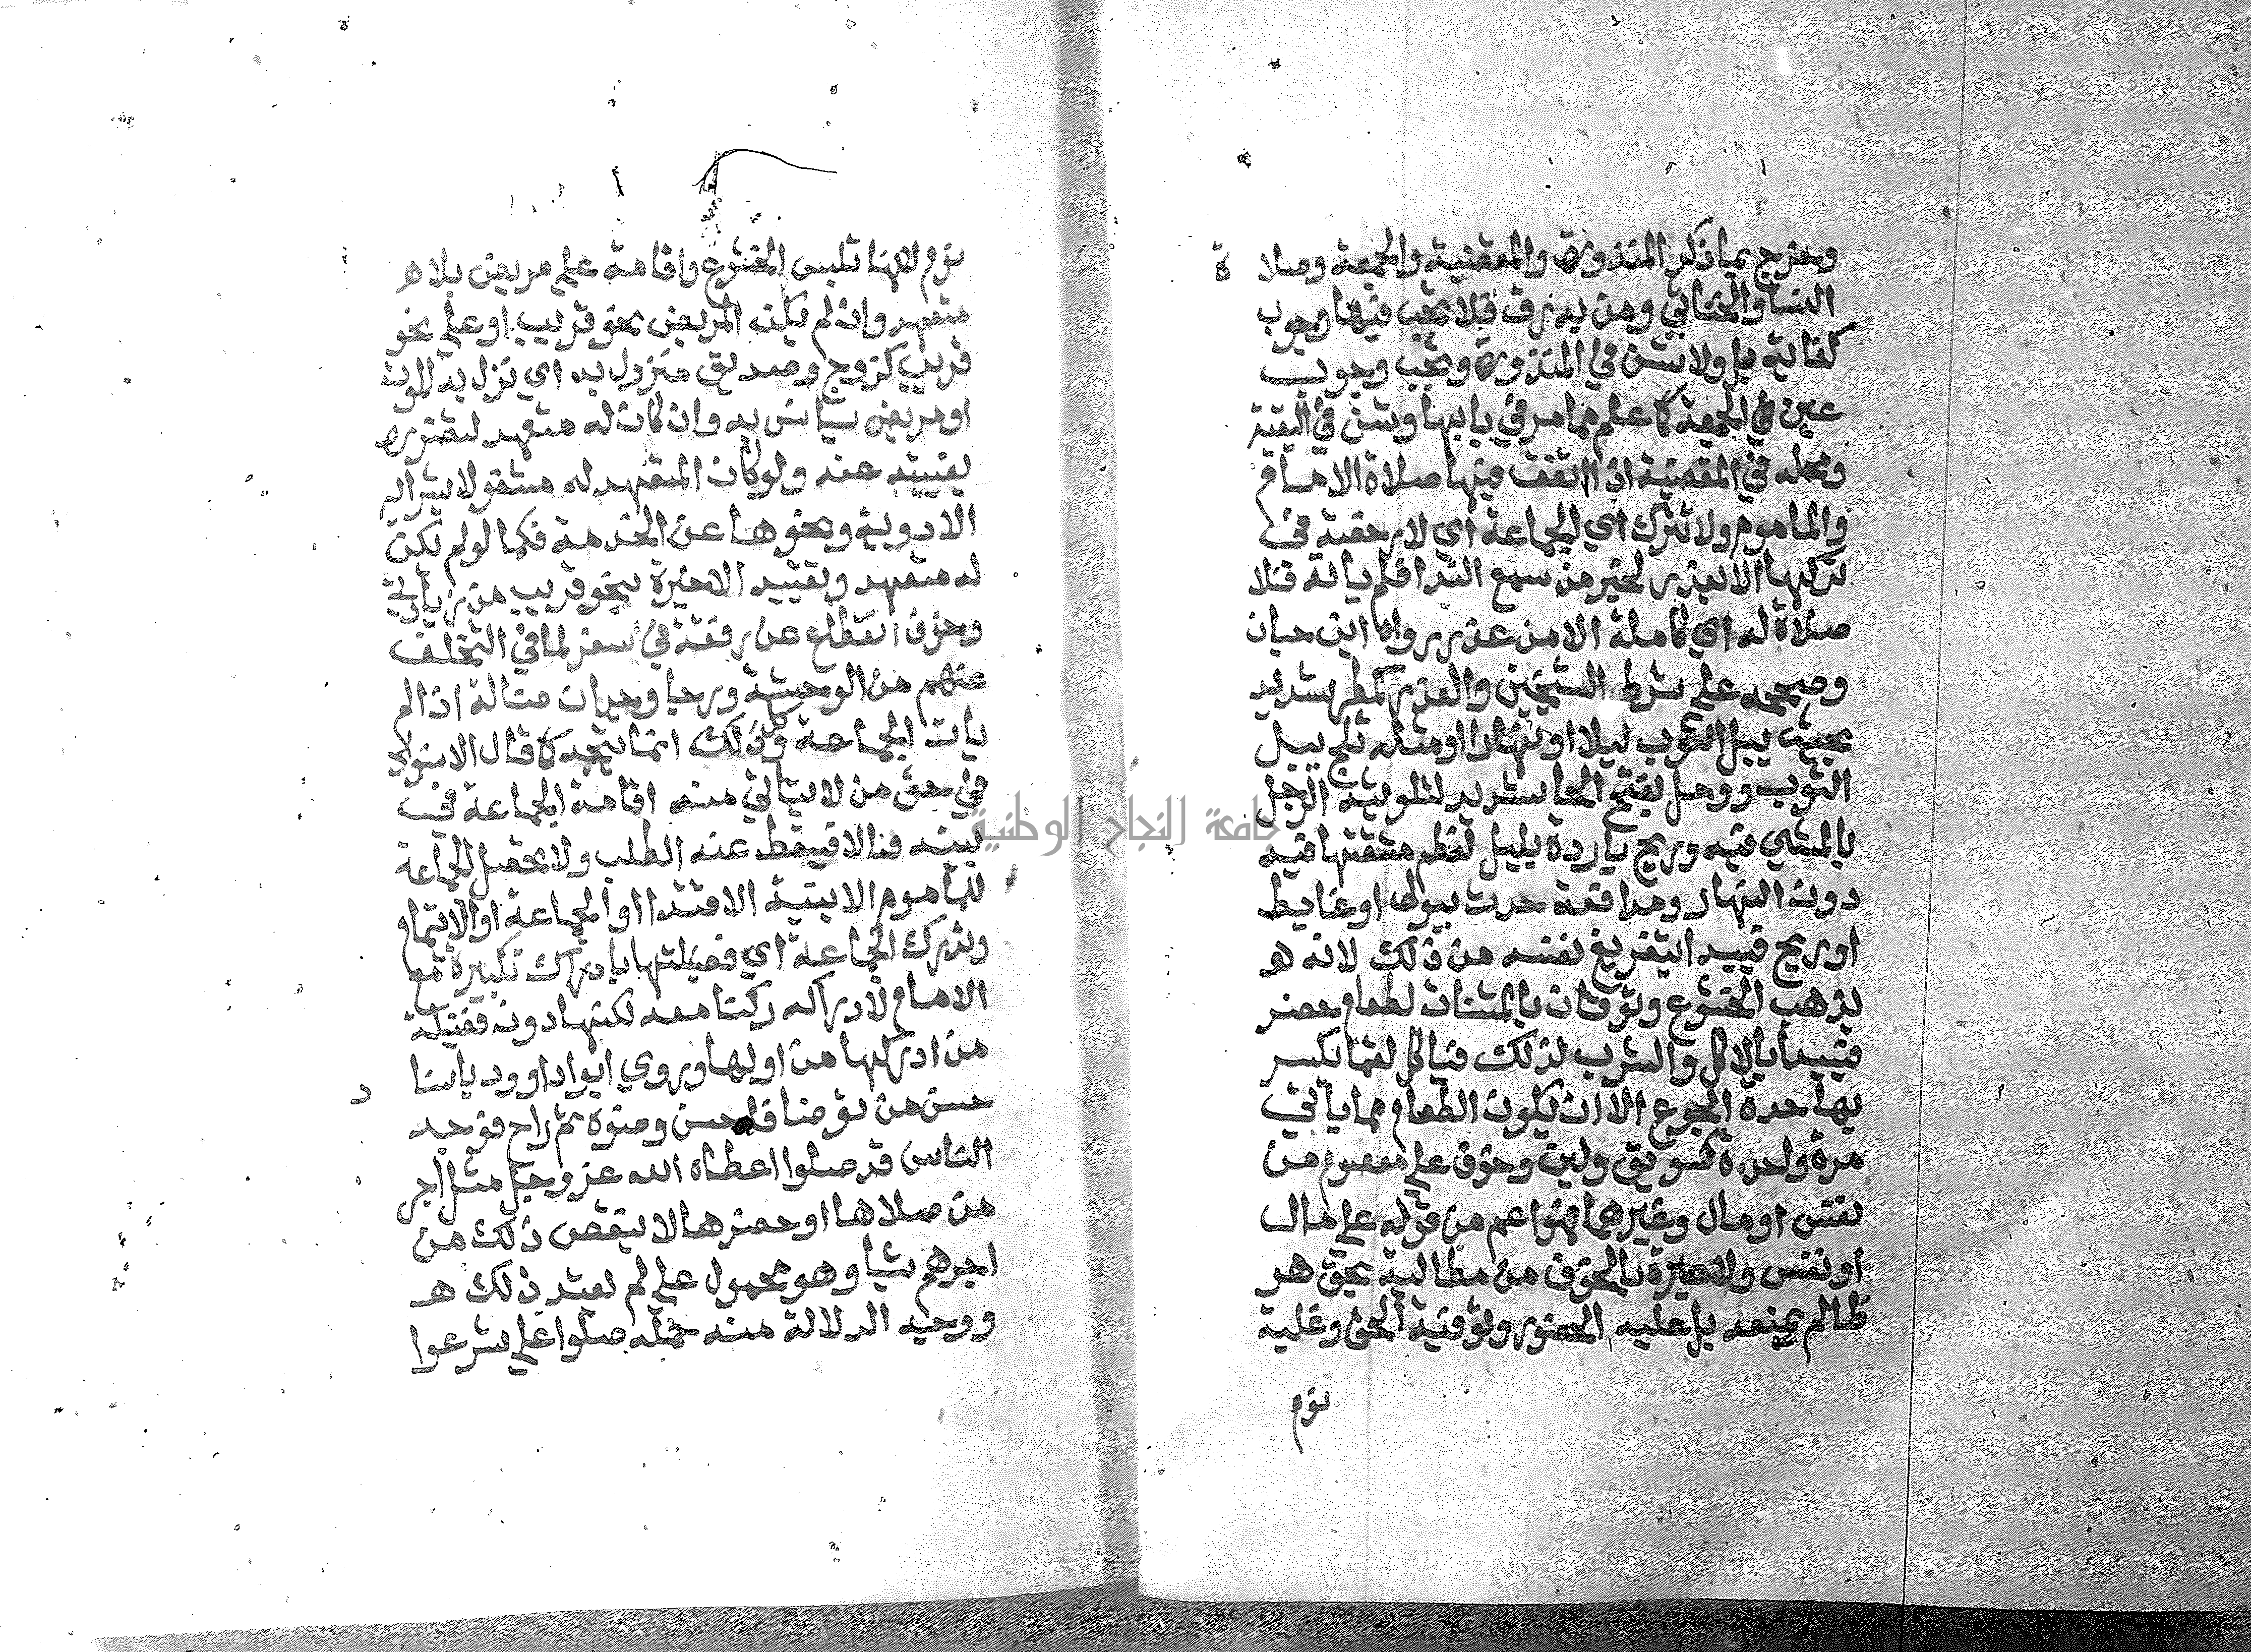 وخرج بما ذكر المنذورة والمقضية والجمعة وصلاة
النسا والخناثي ومن به رق فلا يجب فيها وجوب
كفاية بل ولا تسن في المنذورة ويجب وجوب
عين في الجمعة كما علم مما مر في بابها وتسن في البقية
ومحله في المقضية ان اتفقت فيها صلاة الامام
والماموم ولا تترك اي الجماعة اي لا رخصة في
تركها الا لعذر لخبر من سمع الندا فلم ياته فلا
صلاة له اي كاملة الا من عذر رواه ابن حبان
وصححه علي شرط الشيخين والعذر كمطر شديد
بحيث يبل الثوب ليلا او نهارا او مثله ثلج يبل
الثوب ووحل بفتح الحا شديد لتلويثه الرجل
بالمشي فيه وريح باردة بليل لعظم مشقتها فيه
دون النهار ومدافعة حدث ببول او غايط
او ريح فيبدا بتفريغ نفسه من ذلك لانه ه
يذهب الخشوع وتوقان بالمثناة لطعام حضر
فيبدا بالاكل والشرب لذلك فياكل لقما يكسر
بها حدة الجوع الا ان يكون الطعام مما ياتي
مرة واحدة كسويق ولبن وخوف علي معصوم من
نفس او مال وغيرهما فهو اعم من قوله علي مال
او نفس ولا عبرة بالخوف من مطالبة بحق هو
ظالم بمنعه بل عليه الحضور وتوفية الحق وغلبة
نوم
نوم لانها تلبس الخشوع واقامة علي مريض بلا ه
متعهد وان لم يكن المريض نحو قريب او علي نحو
قريب كزوج وصديق منزول به اي نزل به الموت
او مريض يانس به وان كان له متعهد لتضرره
بغيبته عنه ولو كان المتعهد له مشغولا بشراء
الادوية ونحوها عن الخدمة فكما لو لم يكن
له متعهد وتقييد الاخيرة بنحو قريب من زيادتي
وخوف انقطاع عن رفقة في سفر لما في التخلف
عنهم من الوحشة ورجا وجدان ضالة ان لم
يات الجماعة وكل ذلك انما يتجه كما قال الاسنوي
في حق من لا يتاتي منه اقامة الجماعة في
بيته فالا فيسقط عنه الطلب ولا يحصل الجماعة
للماموم الا بنية الاقتدا او الجماعة او الايتمام
وتدرك الجماعة اي فضيلتها بادراك تكبيرة مع
الامام لادراكه ركنا معه لكنها دون فضيلة
من ادركها من اولها وروي ابو داوود باسناد
حسن من توضا فاحسن وضوه ثم راح فوجد
الناس قد صلوا اعطاه الله عز وجل مثل اجر
من صلاها او حضرها لا ينقص ذلك من
اجرهم شيا وهو محمول علي لم يعتد ذلك ه
ووجه الدلالة منه حمله صلوا علي شرعوا
جامعة النجاح الوطنية